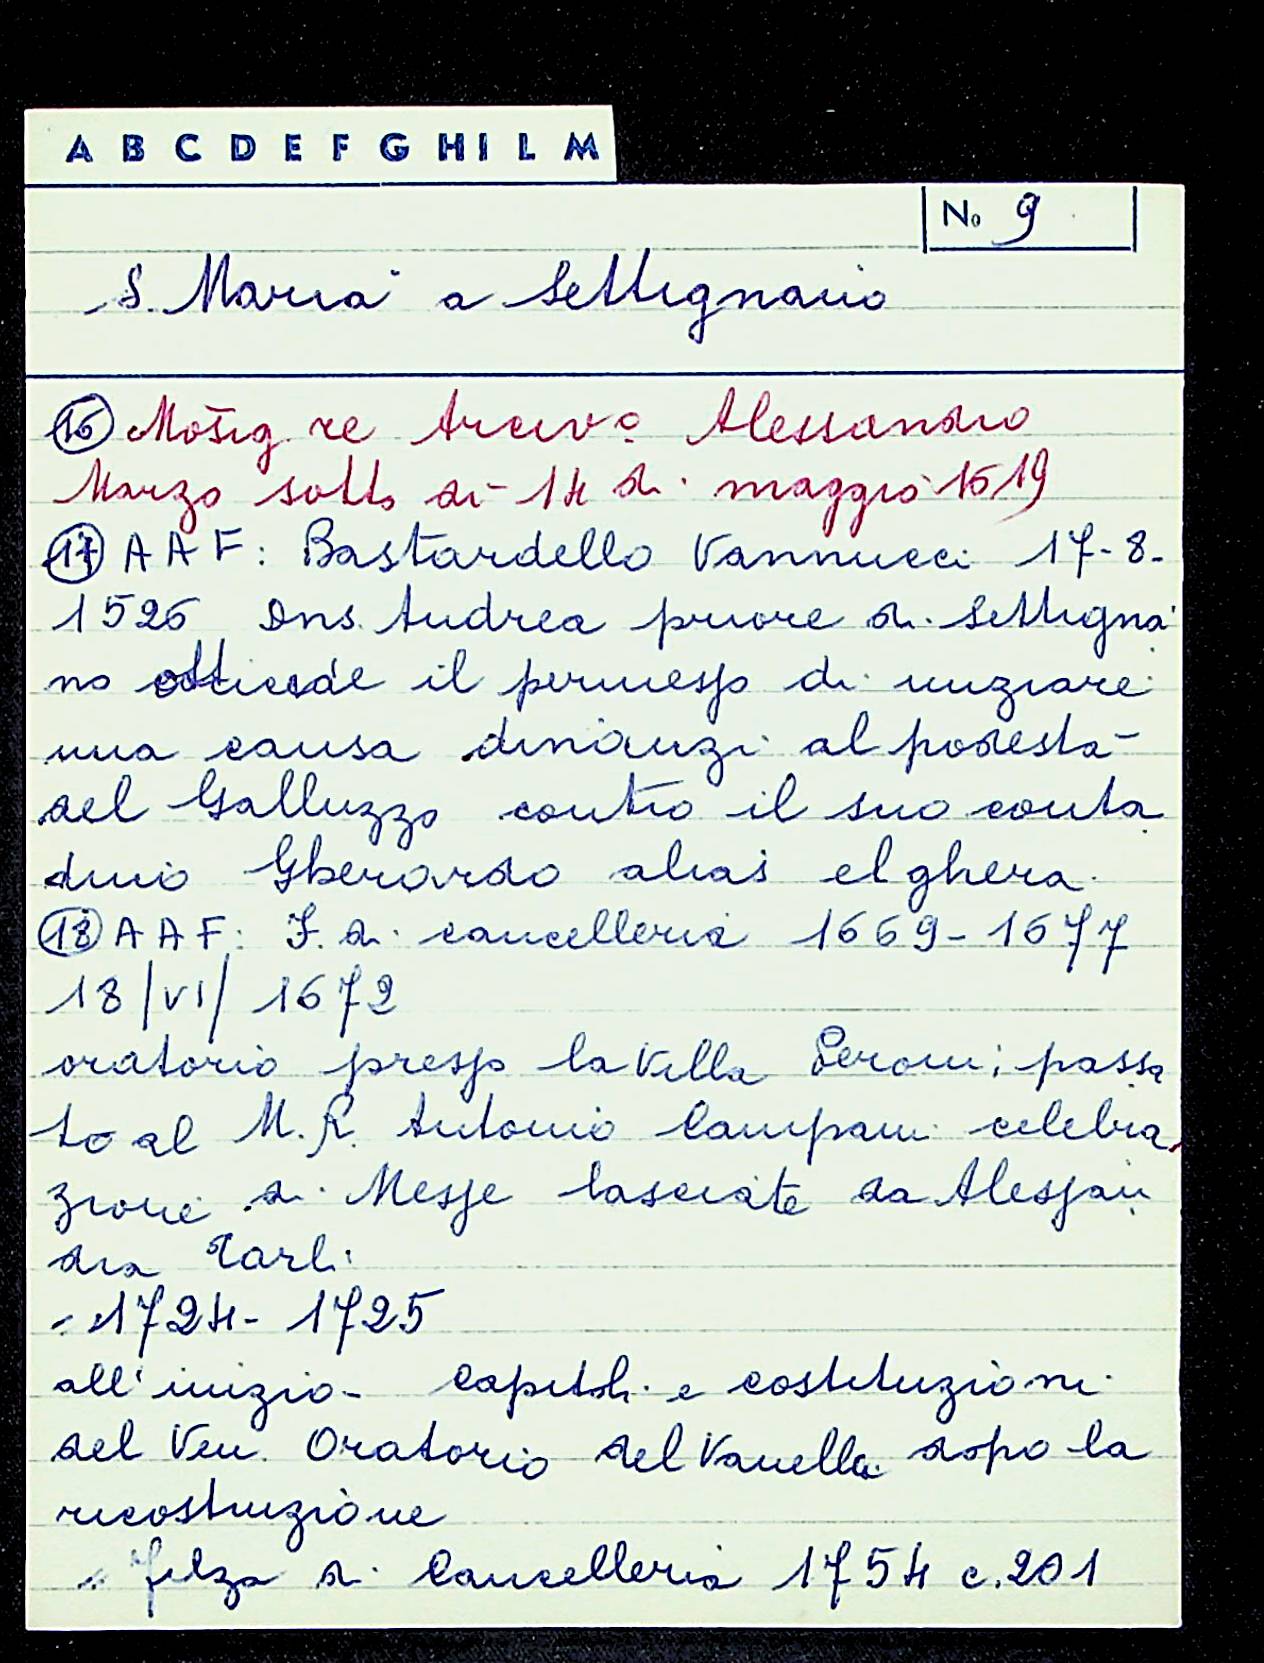 A B C D E F G H I L M
No 9
S. Maria a Settignano
(16) Mosig re Arciv° Alessandro
Marzo sotto di 14 di maggio 1619
(17) A A F: Bastardello Vannucci 17-8-
1526 Dns. Andrea priore di Settigna
no ottiene il permesso di iniziare
una causa dinanzi al podestà
del Galluzzo contro il suo conta
dino Gherardo alias el ghera.
(18) A A F: F. di cancelleria 1669-1677
18/VI/1672
oratorio presso la Villa Peroni; passa
to al M. R. Antonio Campani celebra
zione di Messe lasciate da Alessan
dra Carli
" 1724-1725
all'inizio - Capitoli e costituzioni
del Ven. Oratorio del Vanella dopo la
ricostruzione
" Filza di Cancelleria 1754 c. 201